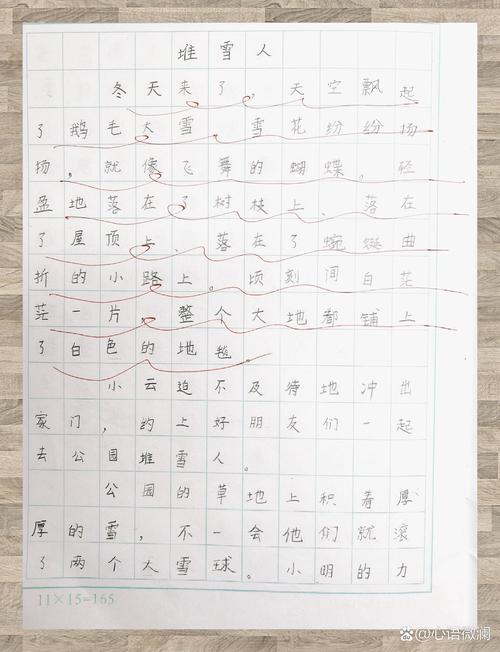 堆雪人
冬天来了，天空飘起
了鹅毛大雪，雪花纷纷扬
扬，就像飞舞的蝴蝶。轻
盈地落在了树枝上、落在
了屋顶上、落在了蜿蜒曲
折的小路上。顷刻间白茫
茫一片，整个大地都铺上
了白色的地毯。
小云迫不及待地冲出
家门，约上好朋友们一起
去公园堆雪人。
公园的草地上积着厚
厚的雪，不一会他们就滚
了两个大雪球。小明的力
11×15=165
心语微澜